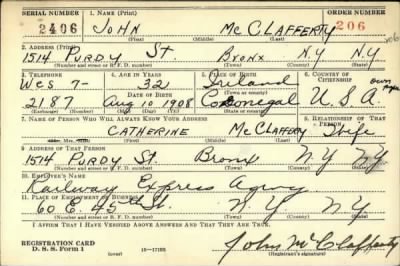 SERIAL NUMBER 1. NAME (Print) ORDER NUMBER
2406 JOHN MC CLAFFERTY 206
(First) (Middle) (Last)
2. ADDRESS (Print)
1514 PURDY ST. BRONX N.Y NY
(Number and street or R. F. D. number) (Town) (County) (State)
3. TELEPHONE 4. AGE IN YEARS 5. PLACE OF BIRTH 6. COUNTRY OF CITIZENSHIP
Wes 7- 32 Ireland own
DATE OF BIRTH (Town or county)
2187 Aug 10 1908 Co Donegal U.S.A.
(Exchange) (Number) (Mo.) (Day) (Yr.) (State or country)
7. NAME OF PERSON WHO WILL ALWAYS KNOW YOUR ADDRESS 8. RELATIONSHIP OF THAT PERSON
CATHERINE MC CLAFFERTY Wife
(Mr., Mrs., Miss) (First) (Middle) (Last)
9. ADDRESS OF THAT PERSON
1514 PURDY St. Bronx N Y NY
(Number and street or R. F. D. number) (Town) (County) (State)
10. EMPLOYER'S NAME
Railway Express Agncy
11. PLACE OF EMPLOYMENT OR BUSINESS
60 E. 45th St. N Y N Y
(Number and street or R. F. D. number) (Town) (County) (State)
I AFFIRM THAT I HAVE VERIFIED ABOVE ANSWERS AND THAT THEY ARE TRUE.
REGISTRATION CARD
D. S. S. Form 1 (over) John McClafferty
(Registrant's signature)